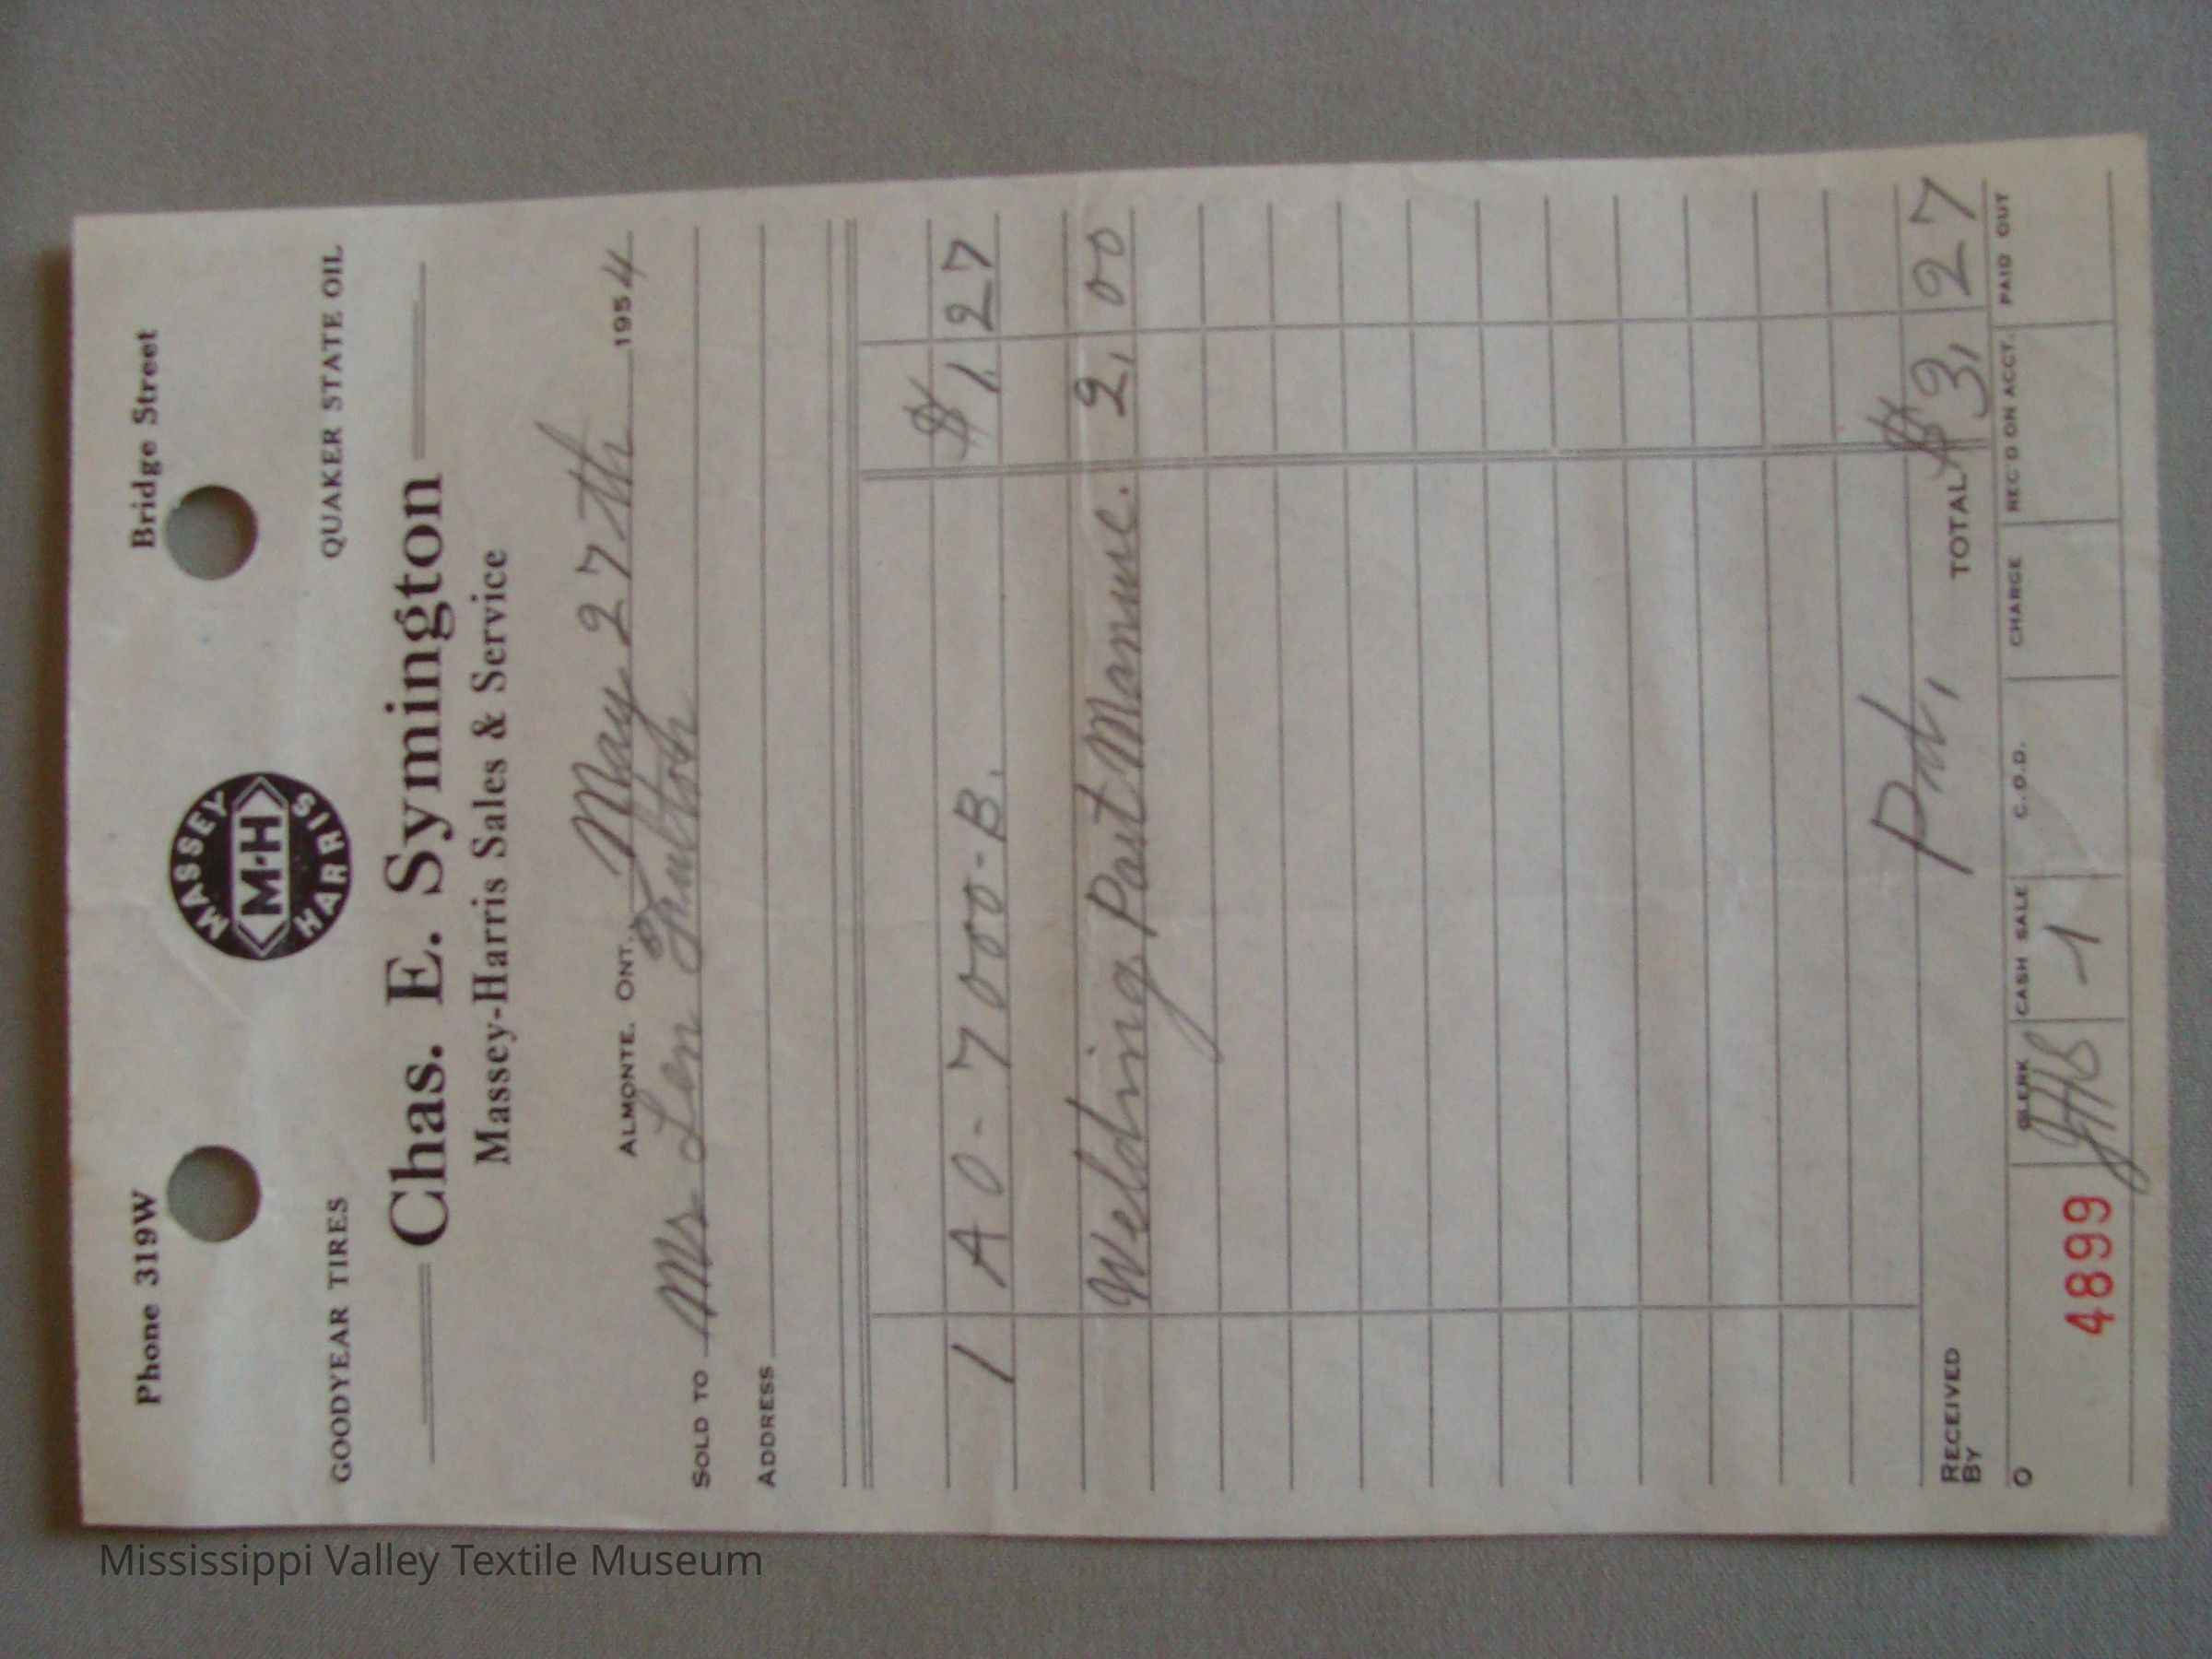 Phone 319W Bridge Street
MASSEY
M-H
HARRIS
GOODYEAR TIRES QUAKER STATE OIL
Chas. E. Symington
Massey-Harris Sales & Service
ALMONTE, ONT. May 27th 1954
SOLD TO Mr Len
ADDRESS
1 A0-7000-B. $1.27
Welding Part 2,00
Pd,
RECEIVED BY TOTAL $3,27
O CLERK CASH SALE C.O.D. CHARGE REC'D ON ACCT. PAID OUT
4899 1
Mississippi Valley Textile Museum